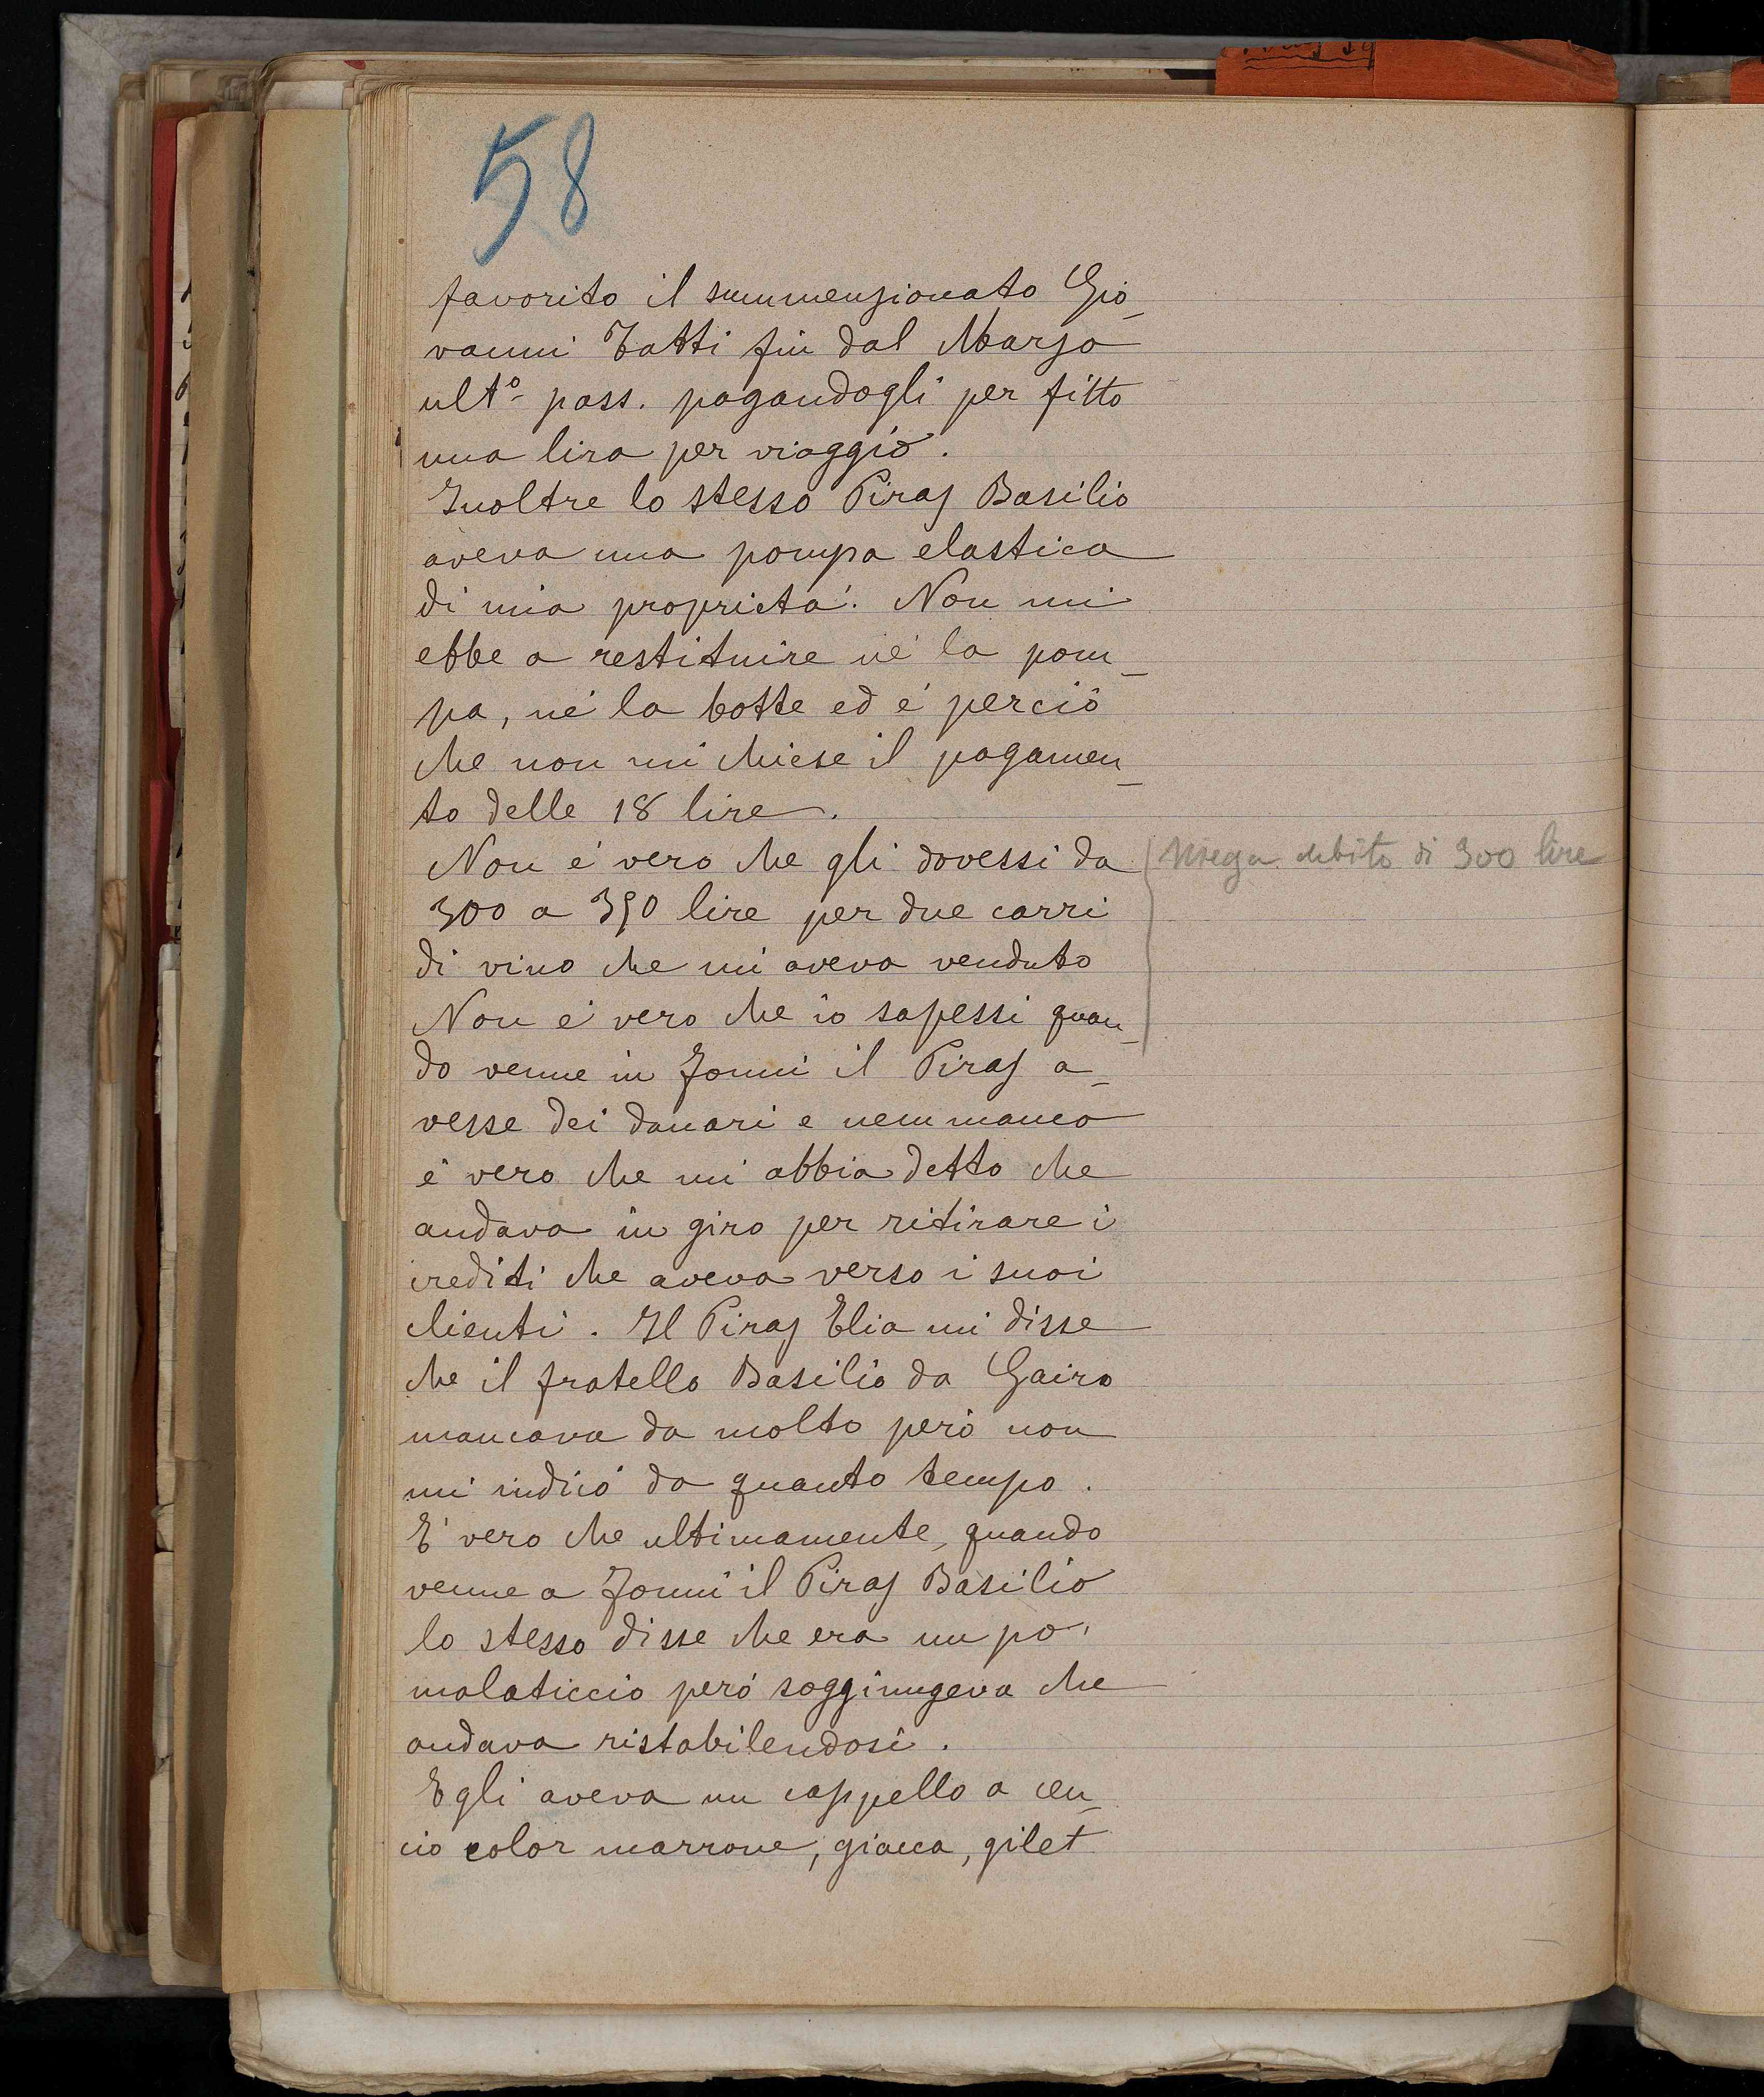 58
favorito il summenzionato Gio_
vanni Tatti fin dal Marzo
ult° pass. pagandogli per fitto
una lira per viaggio.
Inoltre lo stesso Piras Basilio
aveva una pompa elastica
di mia proprietá. Non mi
ebbe a restituire né la pom_
pa, né la botte ed é perció
che non mi chiese il pagamen_
to delle 18 lire.
Non é vero che gli dovessi da
300 a 350 lire per due carri
di vino che mi aveva venduto
Niega debito di 300 lire
Non é vero che io sapessi quan_
do venne in Fonni il Piras a_
vesse dei danari e nemmanco
é vero che mi abbia detto che
andava in giro per ritirare i
crediti che aveva verso i suoi
clienti. Il Piras Elia mi disse
che il fratello Basilio da Gairo
mancava da molto però non
mi indicó da quanto tempo.
E' vero che ultimamente, quando
venne a Fonni il Piras Basilio
lo stesso disse che era un po'
malaticcio peró soggiungeva che
andava ristabilendosi.
Egli aveva un cappello a cen_
cio color marrone, giacca, gilet